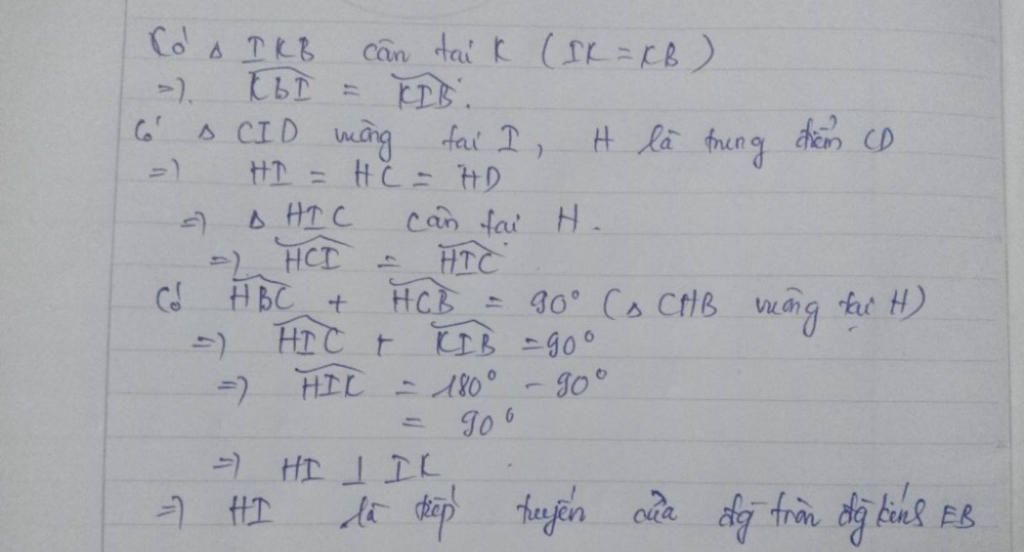 Có Δ IKB cân tại K (IK = KB)
=). \widehat{KBI} = \widehat{KIB}.
Có Δ CID vuông tại I, H là trung điểm CD
=) HI = HC = HD
=) Δ HIC cân tại H.
=) \widehat{HCI} = \widehat{HIC}
Có \widehat{HBC} + \widehat{HCB} = 90° (Δ CHB vuông tại H)
=) \widehat{HIC} + \widehat{KIB} = 90°
=) \widehat{HIK} = 180° - 90°
= 90°
=) HI ⊥ IK
=) HI là tiếp tuyến của đg tròn đg kính EB